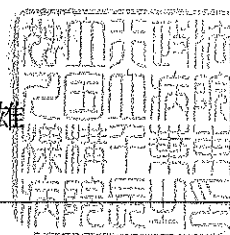 雄
独立行政法
人国立病院
機構千葉東
病院長之印